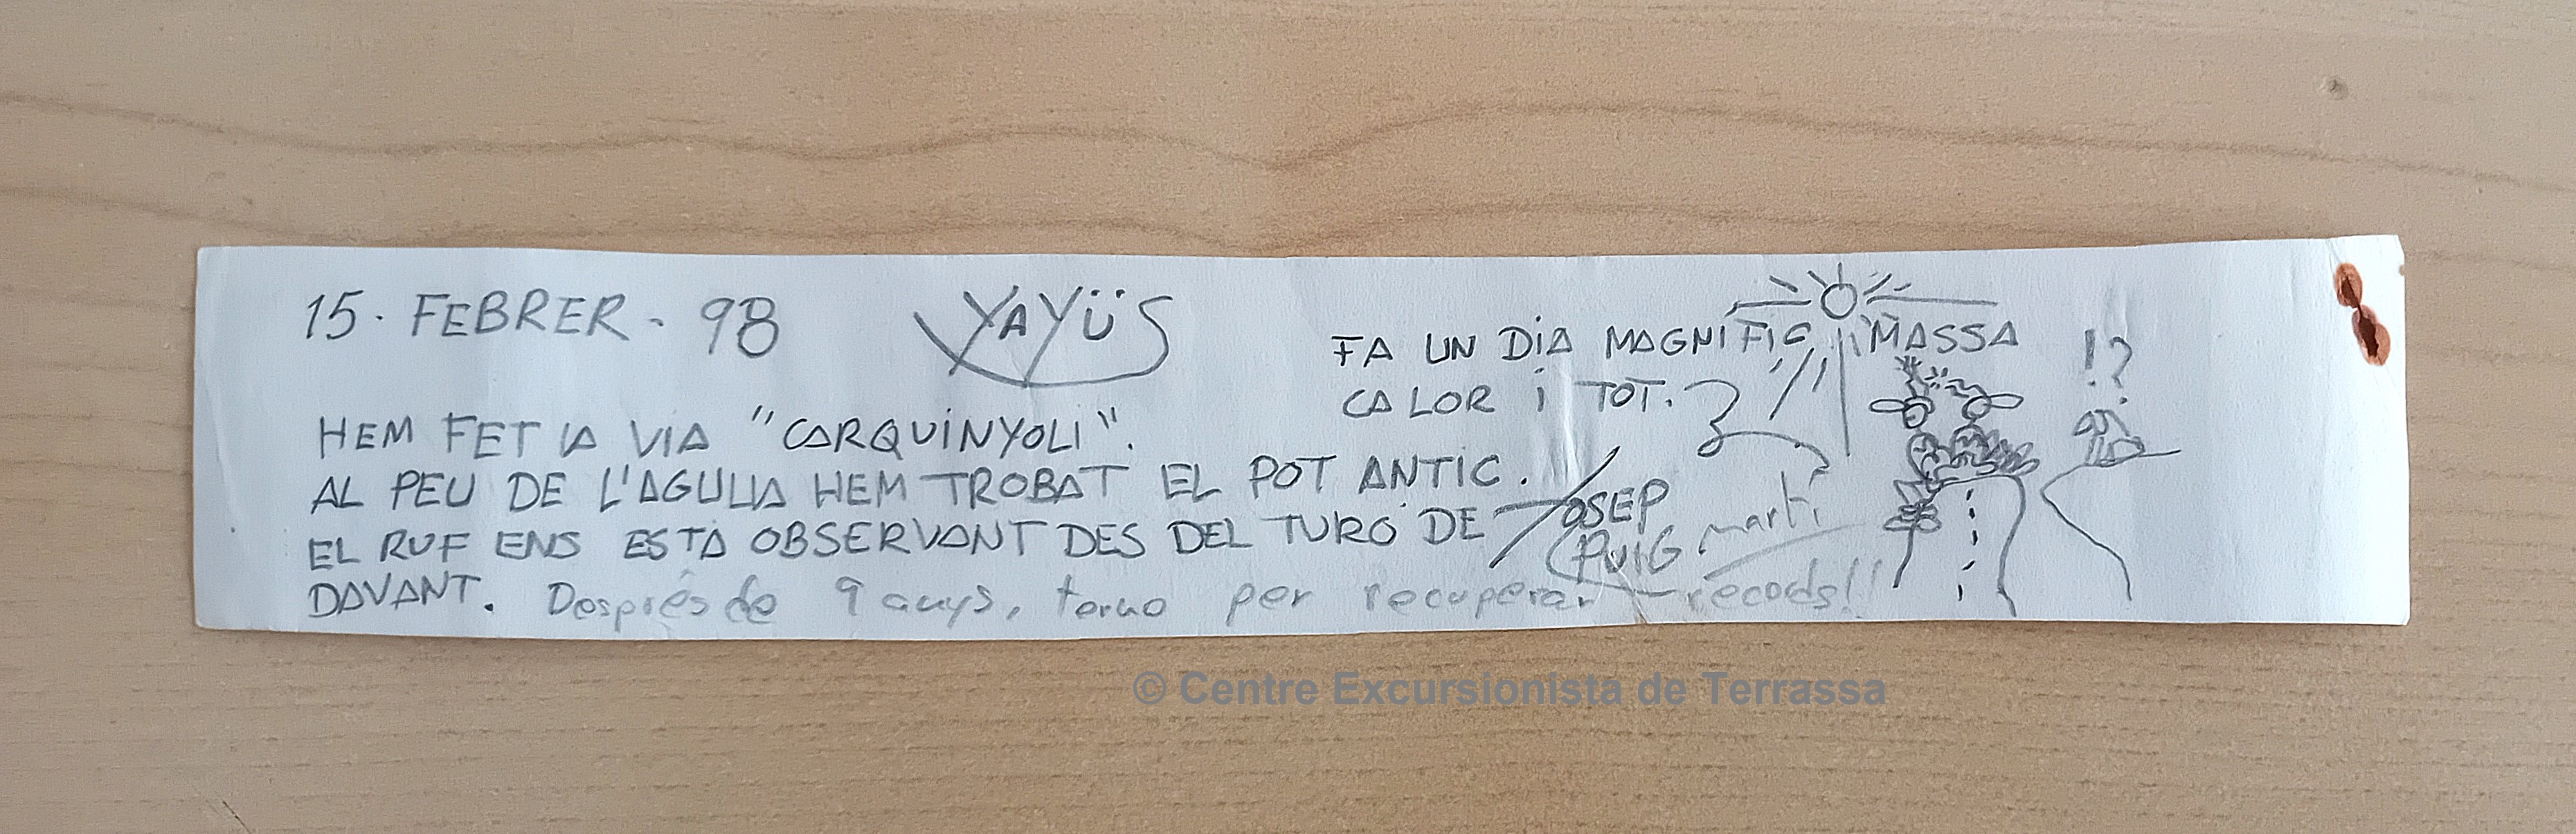 15. FEBRER - 98
YAYÜS
HEM FET LA VIA "CARQUINYOLI".
AL PEU DE L'AGULLA HEM TROBAT EL POT ANTIC.
EL RUF ENS ESTÀ OBSERVANT DES DEL TURÓ DE
DAVANT. Després de 9 anys, torno per recuperar records!!
FA UN DIA MAGNIFIC, MASSA
CALOR I TOT.
!?
JOSEP
PUIG martí
© Centre Excursionista de Terrassa